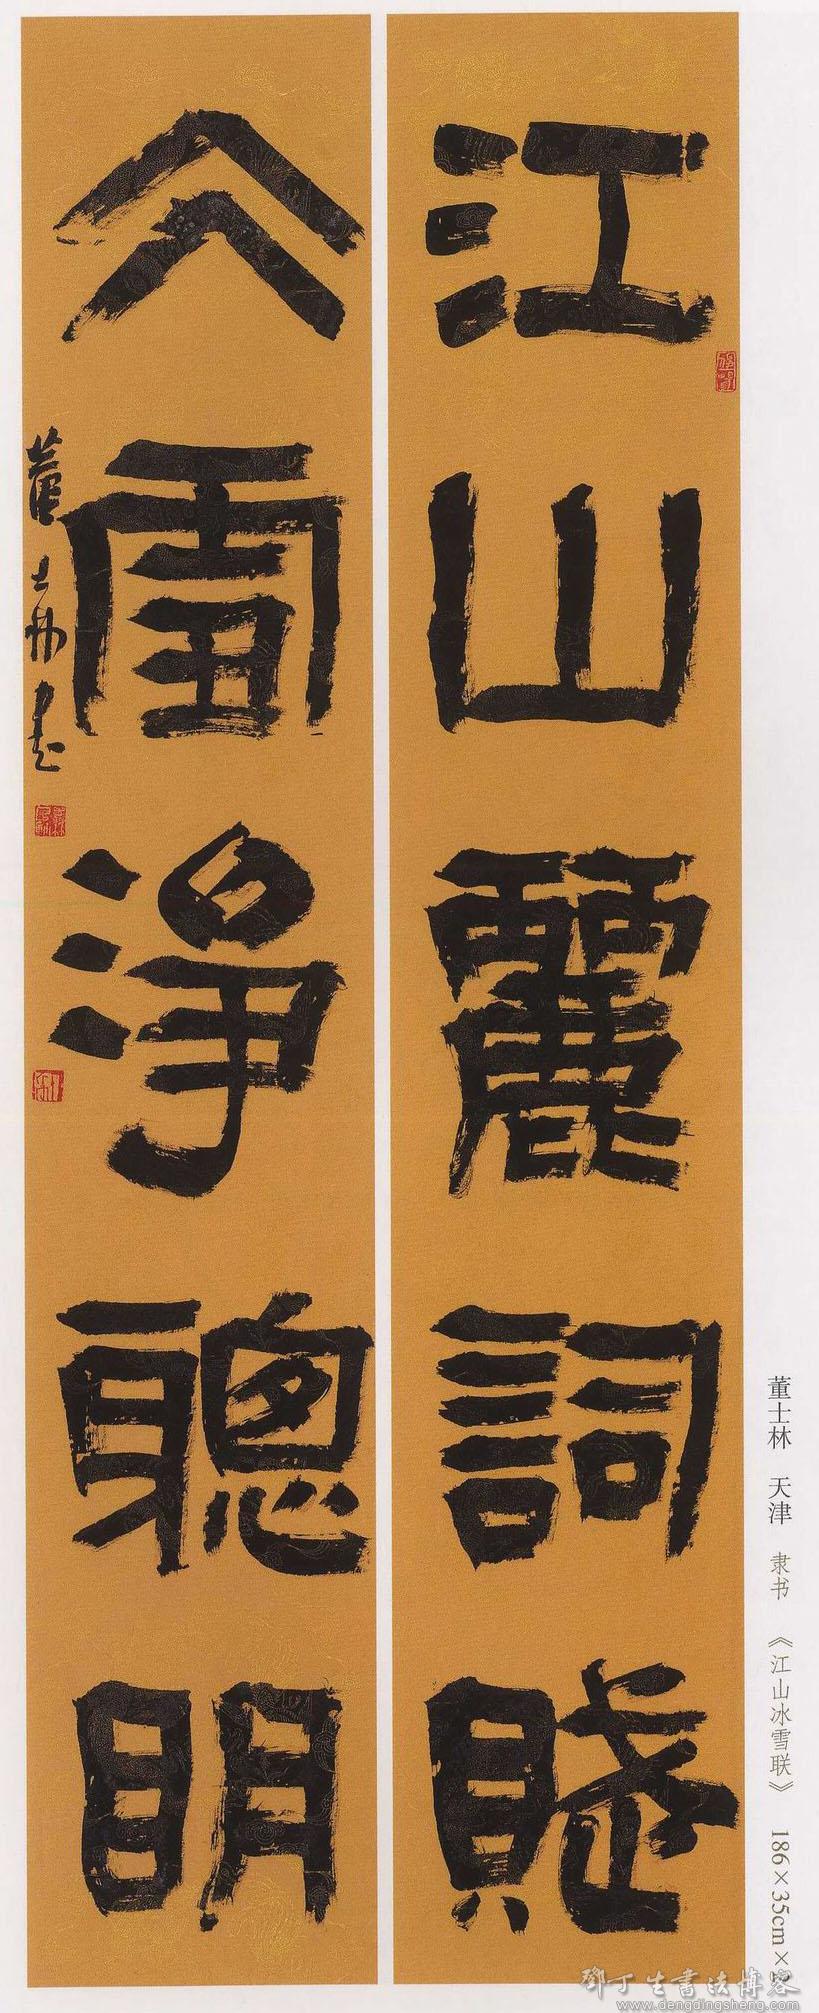 江山麗詞賦
仌雪淨聰明
董士林書
董士林 天津 隶书 《江山冰雪联》 186×35cm×2
鄧丁生書法博客
www.dengdingsheng.com